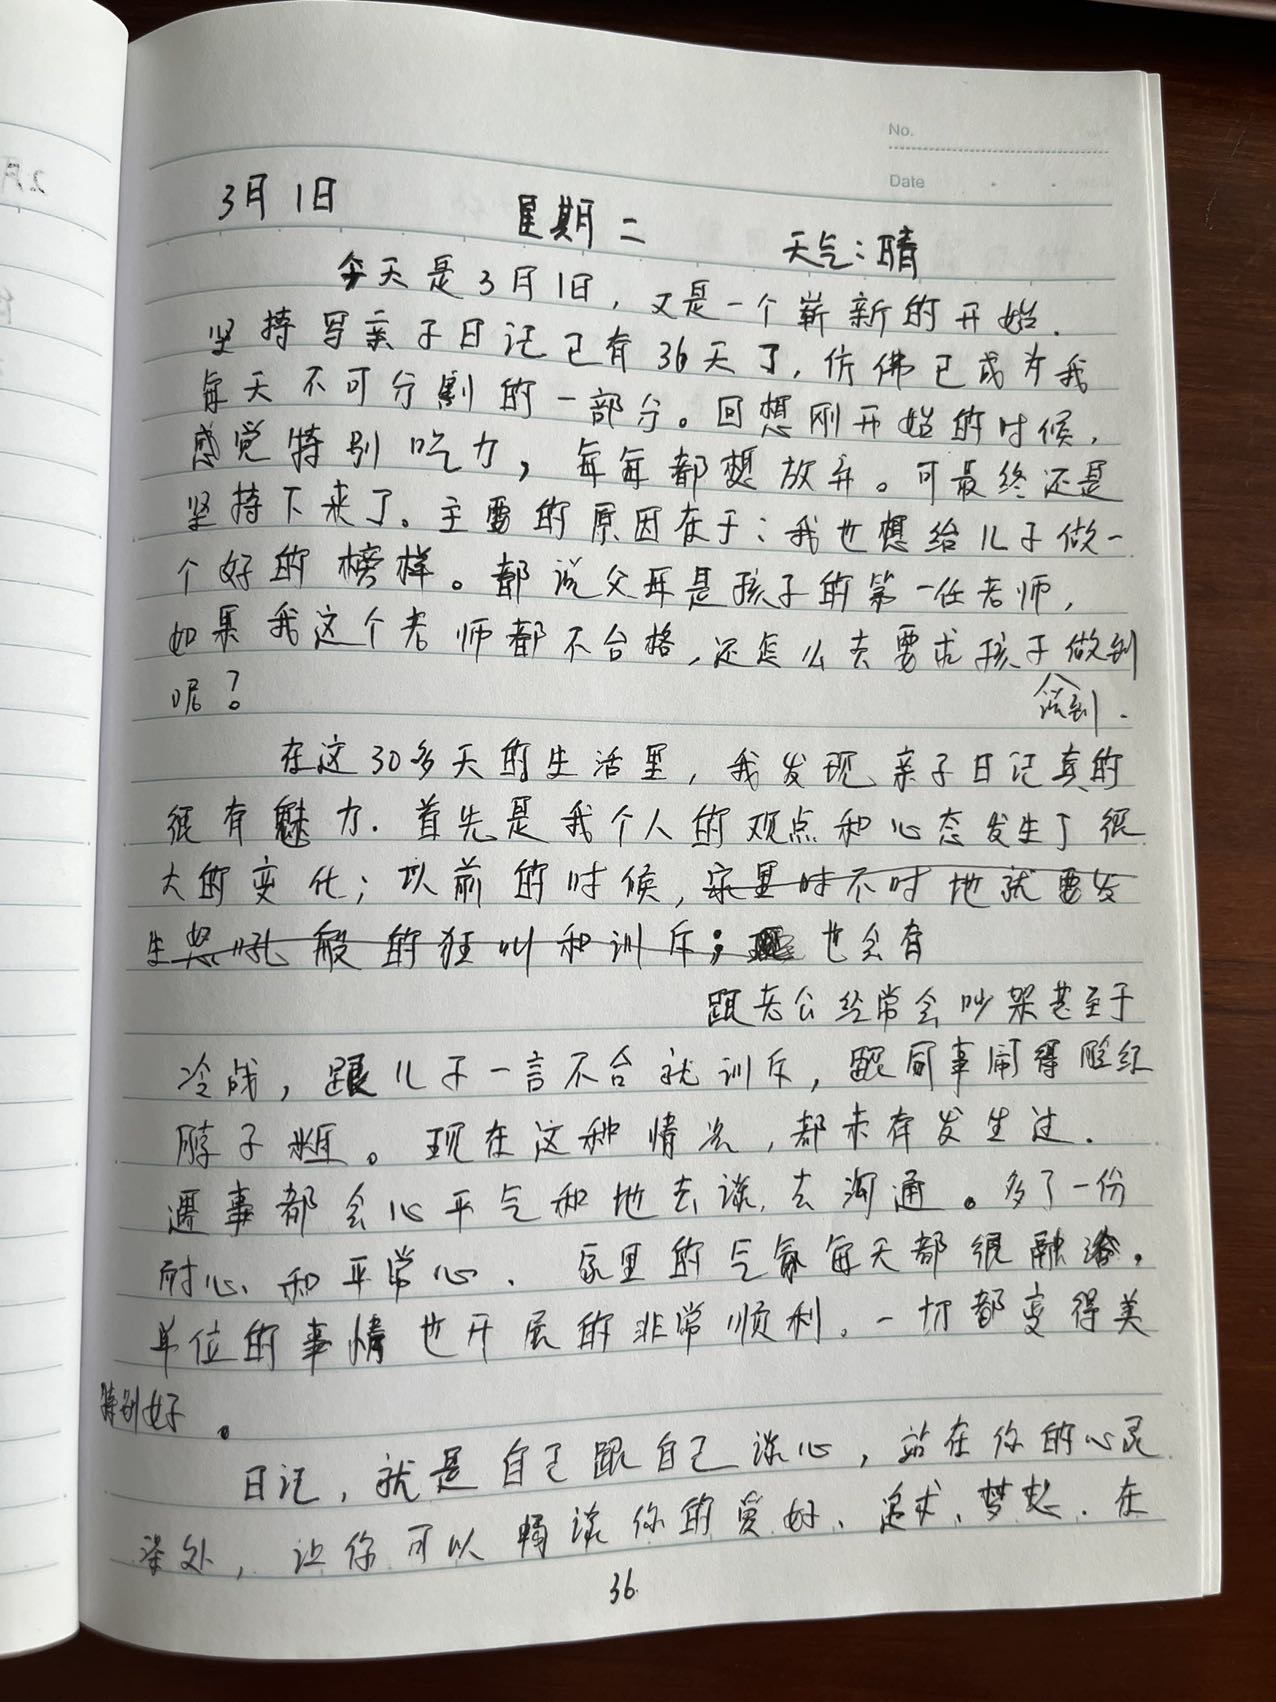 No.
Date
3月1日 星期二 天气：晴
今天是3月1日，又是一个崭新的开始.
坚持写亲子日记已有36天了，仿佛已成为我
每天不可分割的一部分。回想刚开始的时候，
感觉特别吃力，每每都想放弃。可最终还是
坚持下来了。主要的原因在于：我也想给儿子做一
个好的榜样。都说父母是孩子的第一任老师，
如果我这个老师都不合格，还怎么去要求孩子做到
呢？
做到.
在这30多天的生活里，我发现亲子日记真的
很有魅力.首先是我个人的观点和心态发生了很
大的变化；以前的时候，家里时不时地就要发
生怒吼般的狂叫和训斥； 也会有
跟老公经常会吵架甚至于
冷战，跟儿子一言不合就训斥，跟同事闹得脸红
脖子粗。现在这种情况，都未有发生过.
遇事都会心平气和地去谈，去沟通。多了一份
耐心、和平常心.家里的气氛每天都很融洽，
单位的事情也开展的非常顺利。一切都变得美
特别好。
日记，就是自己跟自己谈心，站在你的心灵
深处，让你可以畅谈你的爱好、追求、梦想.在
36